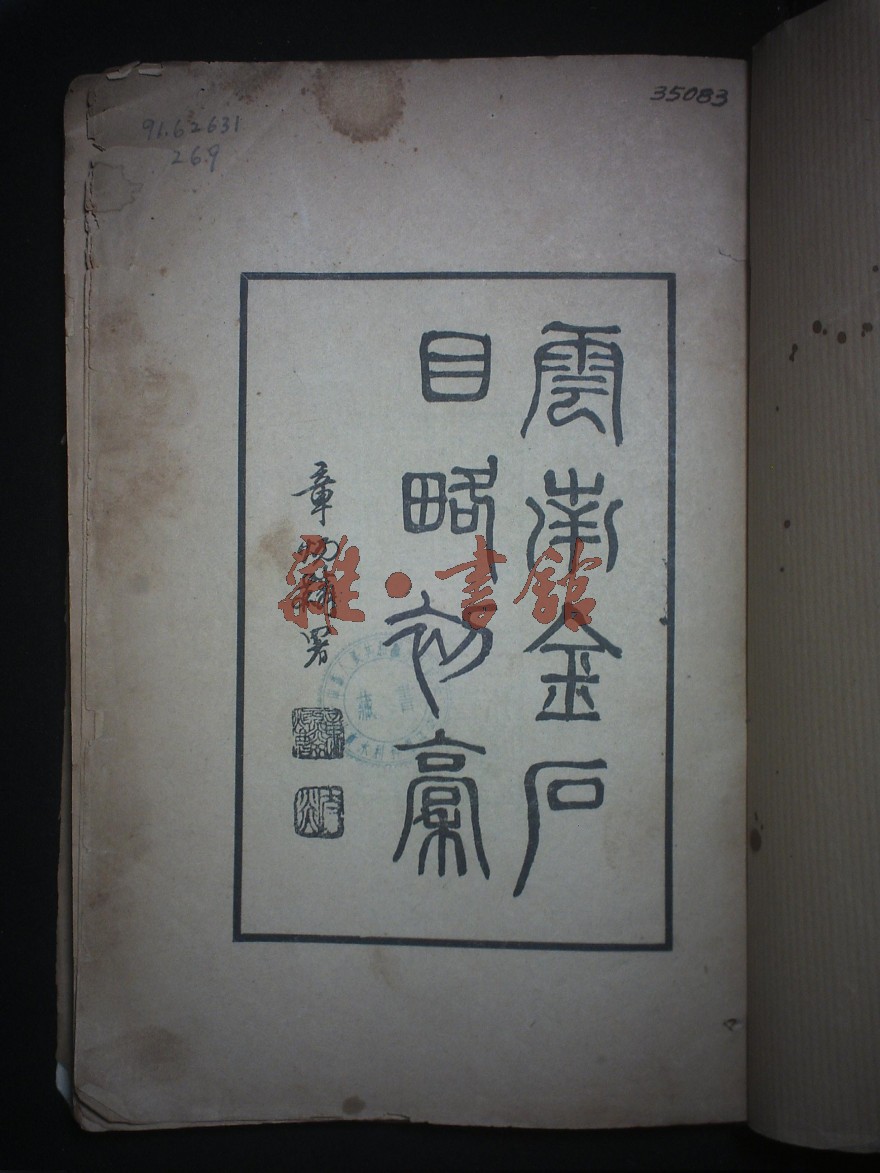 35083
91.62631
26.9
雲南金石
目略初稾
章炳麟署
雜·書館
藏書